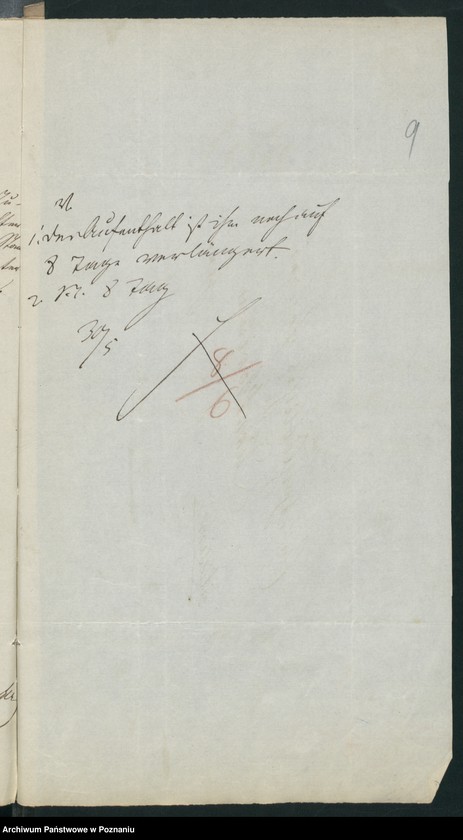 9
V
1. Der Aufenthalt ist ihm noch auf
8 Tage verlängert.
2. N. 8 Tag
30/5
8/6
Archiwum Państwowe w Poznaniu